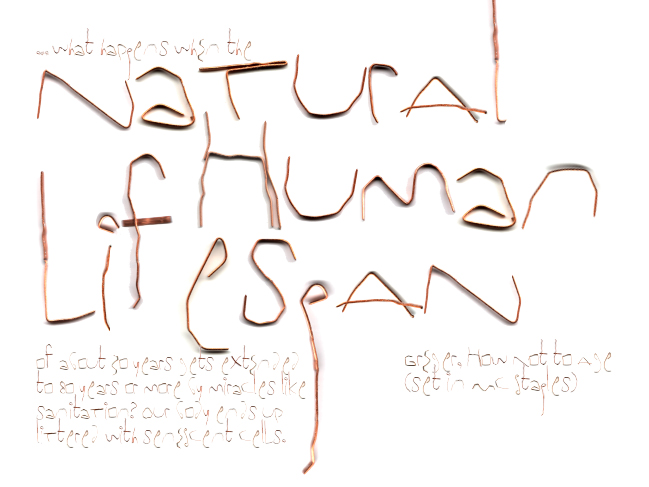 ... what happens when the
Natural
Human
Lifespan
of about 30 years gets extended
to 80 years or more by miracles like
sanitation? Our body ends up
littered with senescent cells.
How not to age
(set in mc staples)